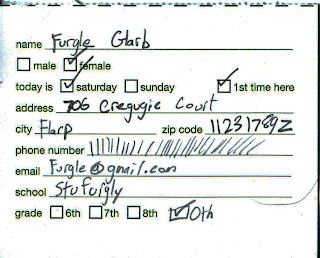 name Furgle Glarb
male female
today is saturday sunday 1st time here
address 706 Cregugie Court
city Flarp zip code 112317892
phone number
email Furgle@gmail.com
school Stufurgly
grade 6th 7th 8th 0th